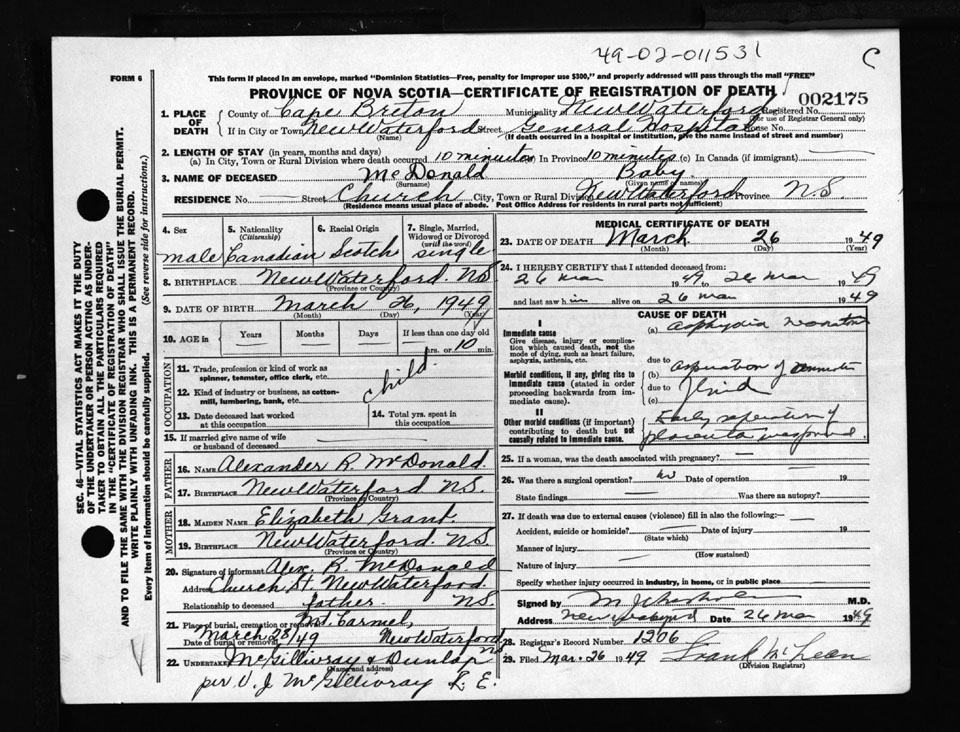 49-02-011531
C
FORM 6
This form if placed in an envelope, marked "Dominion Statistics—Free, penalty for improper use $300," and properly addressed will pass through the mail "FREE"
PROVINCE OF NOVA SCOTIA—CERTIFICATE OF REGISTRATION OF DEATH
002175
1. PLACE OF DEATH
County of Cape Breton Municipality New Waterford Registered No.
(For use of Registrar General only)
If in City or Town New Waterford Street General Hospital House No.
(Name) (If death occurred in a hospital or institution, give the name instead of street and number)
2. LENGTH OF STAY (in years, months and days)
(a) In City, Town or Rural Division where death occurred 10 minutes In Province 10 minutes (c) In Canada (if immigrant) —
3. NAME OF DECEASED McDonald Baby
(Surname) (Given name or names)
RESIDENCE No. — Street Church City, Town or Rural Division New Waterford Province N.S.
(Residence means usual place of abode. Post Office Address for residents in rural parts not sufficient)
4. Sex
male
5. Nationality (Citizenship)
Canadian
6. Racial Origin
Scotch
7. Single, Married, Widowed or Divorced (write the word)
single
8. BIRTHPLACE New Waterford. NS
(Province or Country)
9. DATE OF BIRTH March 26, 1949
(Month) (Day) (Year)
10. AGE in Years Months Days If less than one day old
— — — — hrs. or 10 min.
OCCUPATION
11. Trade, profession or kind of work as spinner, teamster, office clerk, etc.
child.
12. Kind of industry or business, as cotton-mill, lumbering, bank, etc.
13. Date deceased last worked at this occupation
14. Total yrs. spent in this occupation
15. If married give name of wife or husband of deceased —
FATHER
16. NAME Alexander R. McDonald.
17. Birthplace New Waterford NS.
(Province or Country)
MOTHER
18. MAIDEN NAME Elizabeth Grant.
19. Birthplace New Waterford. NS
(Province or Country)
20. Signature of informant Alex. R. McDonald
Address Church St. New Waterford.
NS.
Relationship to deceased father.
21. Place of burial, cremation or removal Mt. Carmel,
Date of burial or removal March 28/49 New Waterford
NS
22. UNDERTAKER McGillivray & Dunlap
(Name and address)
per V. J. McGillivray L. E.
MEDICAL CERTIFICATE OF DEATH
23. DATE OF DEATH March 26 1949
(Month) (Day) (Year)
24. I HEREBY CERTIFY that I attended deceased from:
26 Mar 1949 26 Mar 49
and last saw him alive on 26 Mar 1949
CAUSE OF DEATH
I
Immediate cause
Give disease, injury or complication which caused death, not the mode of dying, such as heart failure, asphyxia, asthenia, etc.
(a) Asphyxia
due to
Morbid conditions, if any, giving rise to immediate cause (stated in order proceeding backwards from immediate cause).
(b) aspiration of
due to
(c) fluid
II
Other morbid conditions (if important) contributing to death but not causally related to immediate cause.
Early separation of
placenta
25. If a woman, was the death associated with pregnancy? —
26. Was there a surgical operation? no Date of operation — 19
State findings — Was there an autopsy?
27. If death was due to external causes (violence) fill in also the following:—
Accident, suicide or homicide? — Date of injury 19
(State which)
Manner of injury —
(How sustained)
Nature of injury —
Specify whether injury occurred in industry, in home, or in public place
Signed by M.D.
Address Date 26 Mar 1949
28. Registrar's Record Number 1206
29. Filed Mar. 26 1949 Frank McLean
(Division Registrar)
SEC. 46—VITAL STATISTICS ACT MAKES IT THE DUTY
OF THE UNDERTAKER OR PERSON ACTING AS UNDER-
TAKER TO OBTAIN ALL THE PARTICULARS REQUIRED
IN THE "CERTIFICATE OF REGISTRATION OF DEATH"
AND TO FILE THE SAME WITH THE DIVISION REGISTRAR WHO SHALL ISSUE THE BURIAL PERMIT.
WRITE PLAINLY WITH UNFADING INK. THIS IS A PERMANENT RECORD.
Every item of information should be carefully supplied. (See reverse side for instructions.)